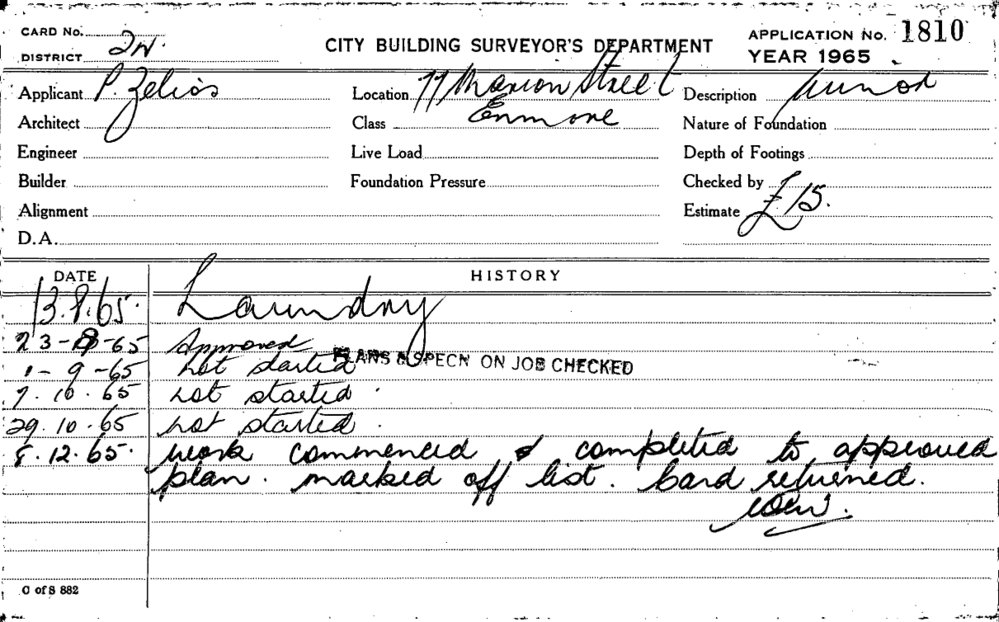 CARD No. 2W.
DISTRICT
CITY BUILDING SURVEYOR'S DEPARTMENT
APPLICATION No. 1810
YEAR 1965
Applicant P. Zelios
Location 77 Marion Street
Description Minor
Architect
Class Enmore
Nature of Foundation
Engineer
Live Load
Depth of Footings
Builder
Foundation Pressure
Checked by
Alignment
Estimate £15.
D.A.
DATE HISTORY
13.8.65 Laundry
23-8-65 Approved
PLANS & SPECN ON JOB CHECKED
1-9-65 Not started
7.10.65 Not started.
29.10.65 Not started.
8.12.65. Work commenced & completed to approved
plan. marked off list. Card returned.
C of S 882